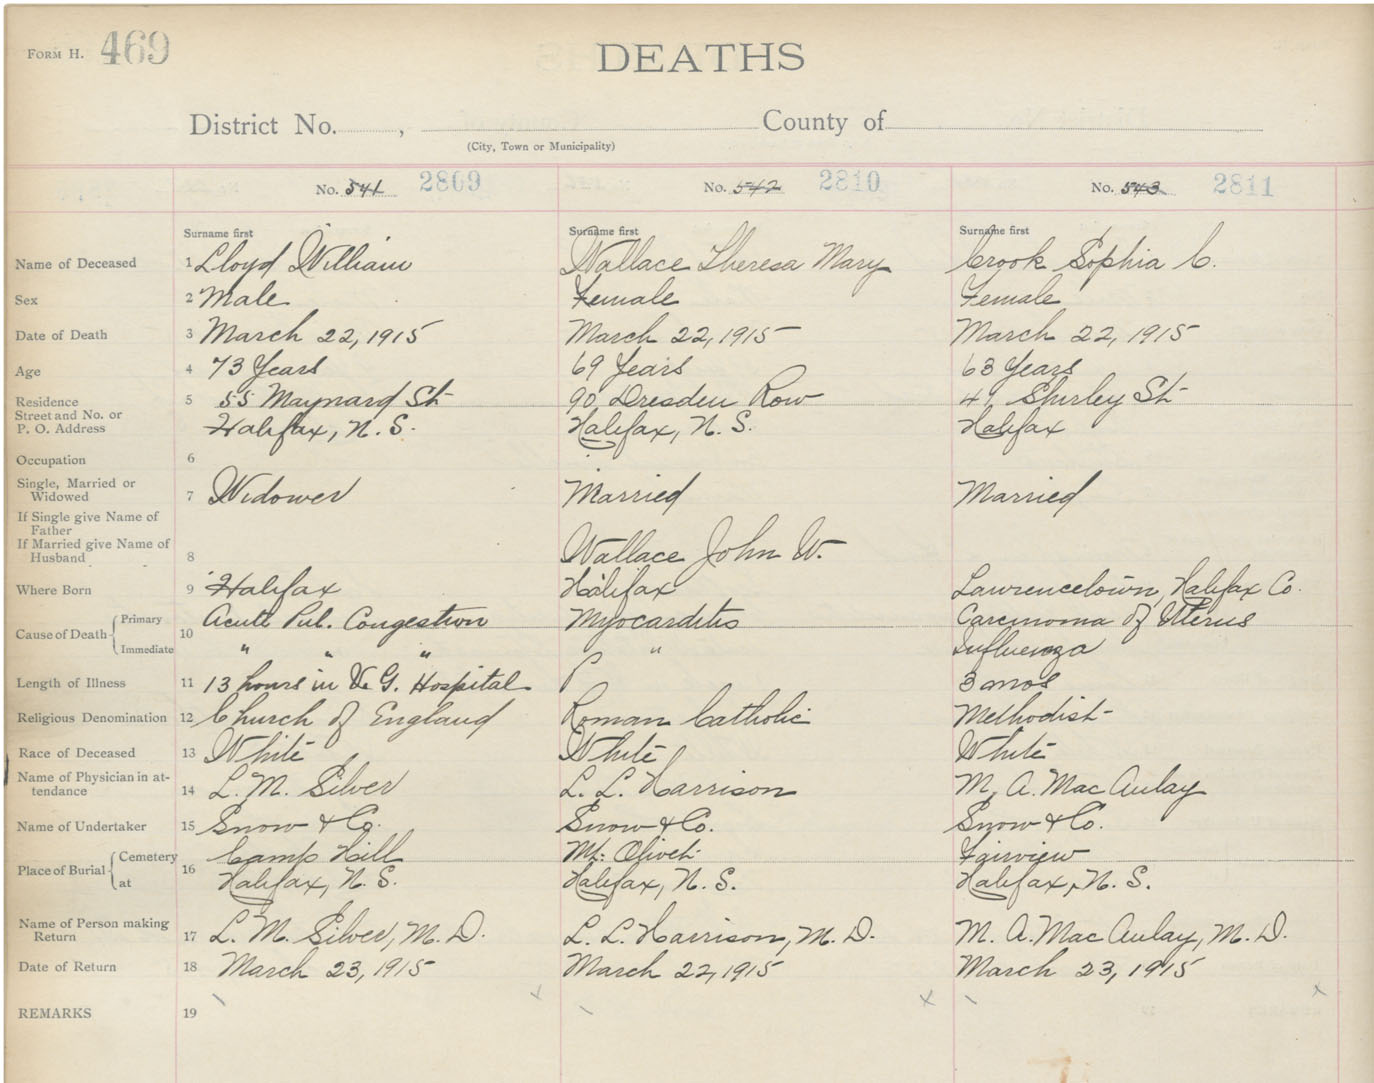 FORM H. 469
DEATHS
District No. , County of
(City, Town or Municipality)
No. 541 2809 No. 542 2810 No. 543 2811
Surname first Surname first Surname first
Name of Deceased 1 Lloyd William Wallace Theresa Mary Crook Sophia C.
Sex 2 Male Female Female
Date of Death 3 March 22, 1915 March 22, 1915 March 22, 1915
Age 4 73 Years 69 Years 63 Years
Residence 5 55 Maynard St 90 Dresden Row Shirley St
Street and No. or
P. O. Address Halifax, N. S. Halifax, N. S. Halifax
Occupation 6
Single, Married or
Widowed 7 Widower Married Married
If Single give Name of
Father
If Married give Name of
Husband 8 Wallace John W.
Where Born 9 Halifax Halifax Lawrencetown, Halifax Co.
Cause of Death Primary 10 Acute Pul. Congestion Myocarditis Carcinoma of Uterus
Immediate " " " " Influenza
Length of Illness 11 13 hours in V. G. Hospital 3 mos
Religious Denomination 12 Church of England Roman Catholic Methodist
Race of Deceased 13 White White White
Name of Physician in at-
tendance 14 L. M. Silver L. L. Harrison M. A. MacAulay
Name of Undertaker 15 Snow & Co. Snow & Co. Snow & Co.
Place of Burial Cemetery 16 Camp Hill Mt. Olivet Fairview
at Halifax, N. S. Halifax, N. S. Halifax, N. S.
Name of Person making
Return 17 L. M. Silver, M. D. L. L. Harrison, M. D. M. A. MacAulay, M. D.
Date of Return 18 March 23, 1915 March 22, 1915 March 23, 1915
REMARKS 19